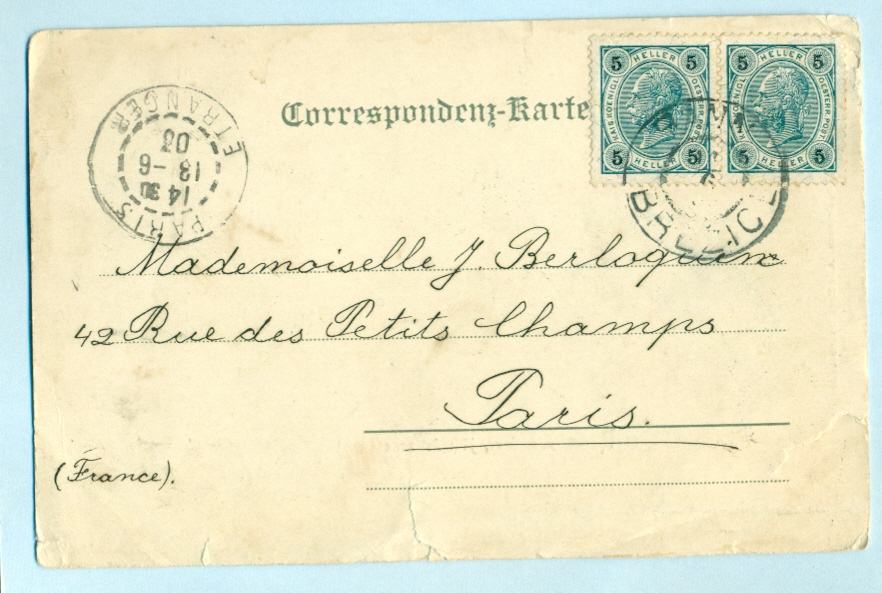 Correspondenz-Karte
5 HELLER 5
KAIS. KOENIGL. OESTERR. POST.
5 HELLER 5
5 HELLER 5
OESTERR. POST.
5 HELLER 5
PARIS
14 30
13 - 6
03
ETRANGER
Mademoiselle J. Berloquin
42 Rue des Petits Champs
Paris.
(France).